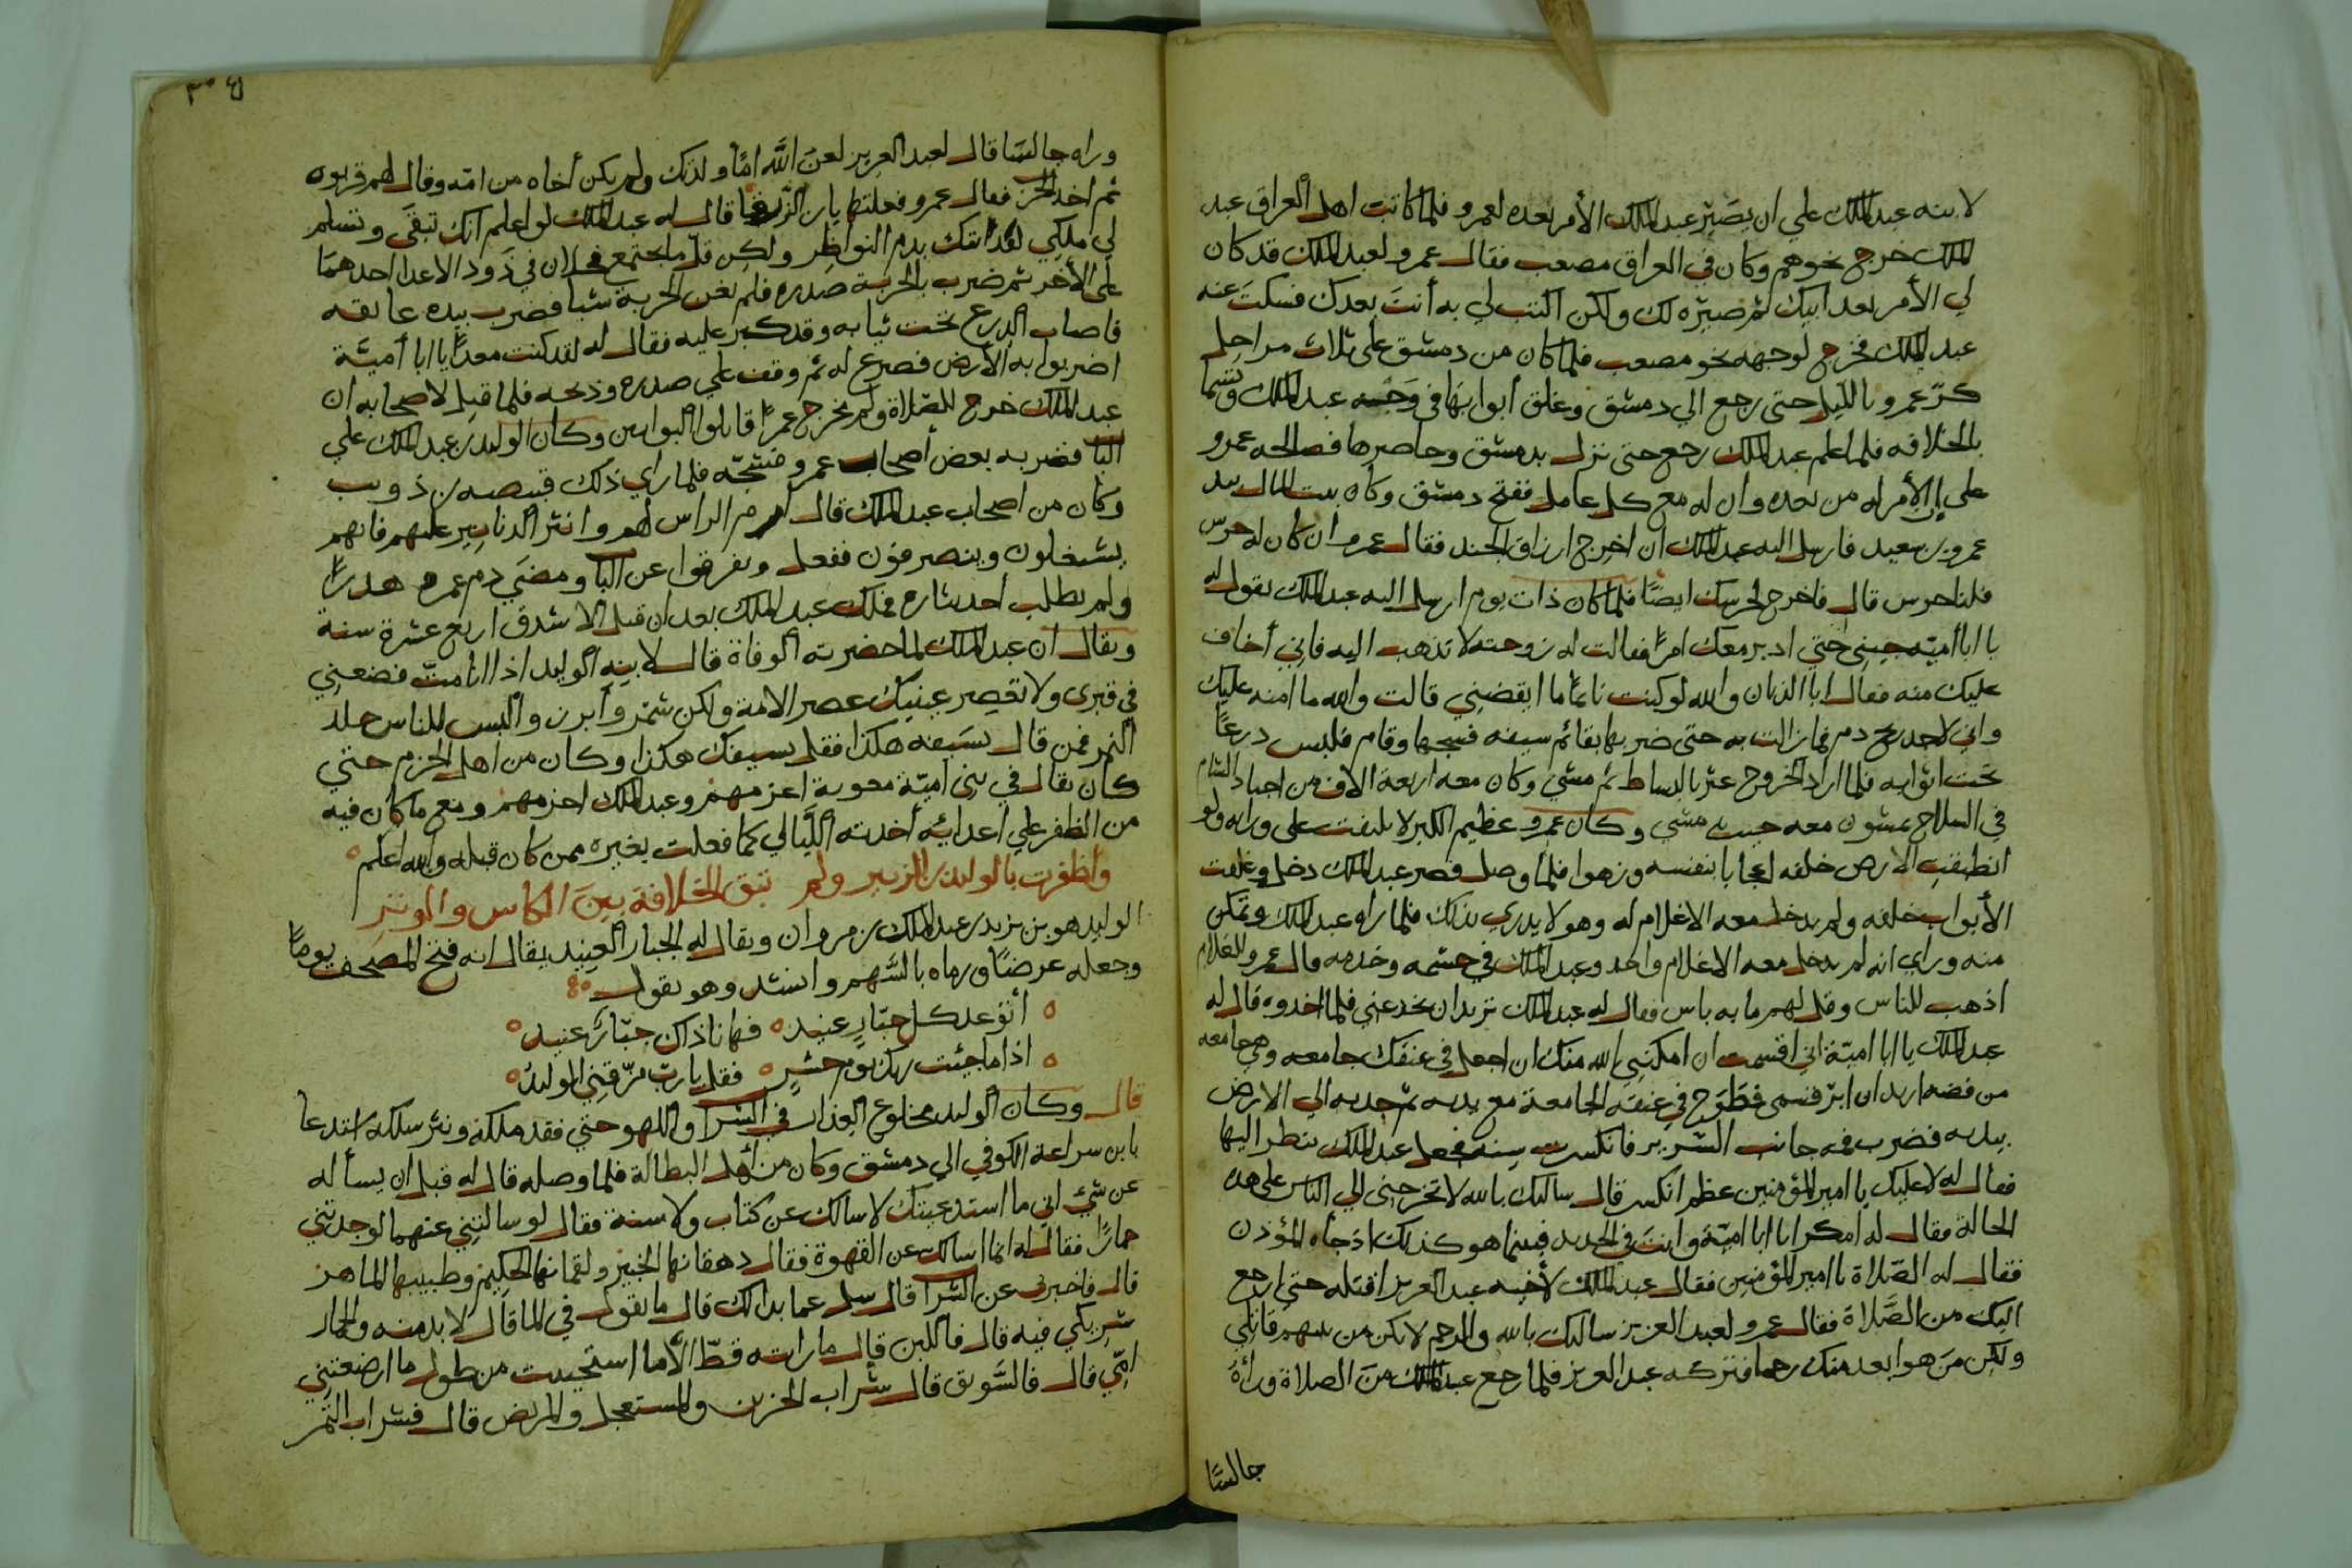 لابنه عبد الملك علي ان يصير عبد الملك الأمر بعده لعمرو فلما كاتبت اهل العراق عبد
الملك خرج نحوهم وكان في العراق مصعب فقال عمرو لعبد الملك قد كان
لي الأمر بعد ابيك ثم صيره لك ولكن اكتب لي به أنت بعدك فسكت عنه
عبد الملك فخرج لوجهه نحو مصعب فلما كان من دمشق على ثلاث مراحل
كرّ عمرو بالليل حتى رجع الي دمشق وغلق أبوابها في وجه عبد الملك وتسما
بالخلافه فلما علم عبد الملك رجع حتى نزل بدمشق وحاصرها فصالحه عمرو
على ان الأمر له من بعده وان له مع كل عامل ففتح دمشق وكان بيت المال بيد
عمرو بن سعيد فارسل اليه عبد الملك ان اخرج ارزاق الجند فقال عمرو ان كان لك حرس
فلنا حرس قال فاخرج لحرسك ايضًا فلما كان ذات يوم ارسل اليه عبد الملك يقول له
يا ابا أميّه جيني حتي ادبر معك امرًا فقالت له زوجته لا تذهب اليه فاني أخاف
عليك منه فقال ابا الذبان والله لو كنت نائمًا ما ايقضني قالت والله ما امنه عليك
واني لاجد ريح دم فما زالت به حتى ضربها بقائم سيفه فشجها وقام فلبس درعًا
تحت اثوابه فلما اراد الخروج عثر بالبساط ثم مشي وكان معه اربعة الاف من اجناد الشام
في السلاح يمشون معه حيث مشي وكان عمرو عظيم الكبر لا يلتفت على ورائه ولو
انطبقت الارض خلفه اعجابا بنفسه وزهوا فلما وصل قصر عبد الملك دخل وغلقت
الأبواب خلفه ولم يدخل معه الا غلام له وهو لا يدري بذلك فلما راه عبد الملك وتمكن
منه وراي انه لم يدخل معه الا غلام واحد وعبد الملك في حشمه وخدمه قال عمرو للغلام
اذهب للناس وقل لهم ما به باس فقال له عبد الملك تريد ان تخدعني فلما اخذوه قال له
عبد الملك يا ابا اميّة اني اقسمت ان امكنني الله منك ان اجعل في عنقك جامعه وهي جامعه
من فضه اريد ان ابر قسمي فطوح في عنقه الجامعة مع يديه ثم جذبه الي الارض
بيده فضرب فمه جانب السرير فانكسرت سنه فجعل عبد الملك ينظر اليها
فقال له لا عليك يا امير المؤمنين عظم انكسر قال سالتك بالله لا تخرجني الي الناس على هذه
الحالة فقال له امكرا يا ابا اميّة وانت في الحديد فبينما هو كذلك اذ جاه المؤذن
فقال له الصّلاة يا امير المؤمنين فقال عبد الملك لأخيه عبد العزيز اقتله حتى ارجع
اليك من الصَّلاة فقال عمرو لعبد العزيز سالتك بالله والرحم لا تكن من بينهم قاتلي
ولكن من هو ابعد منك رحما فتركه عبد العزيز فلما رجع عبد الملك من الصلاة وراه
جالسًا
وراه جالسًا قال لعبد العزيز لعن الله امًا ولدتك ولم يكن أخاه من امّه وقال لهم قربوه
ثم اخذ الحربة فقال عمرو فعلتها يا بن الزرقا قال له عبد الملك لو اعلم انك تبقى وتسلم
لي ملكي لفديتك بدم النواظر ولكن قلّ ما اجتمع فحلان في ذود الا عدا احدهما
على الأخر ثم ضرب بالحربة صدره فلم تغن الحربة شيا فضرب بيده عاتقه
فاصاب الدرع تحت ثيابه وقد كبر عليه فقال له لقد كنت معدًا يا ابا أميّة
اضربوا به الأرض فصرع له ثم وقف على صدره وذبحه فلما قيل لاصحابه ان
عبد الملك خرج للصّلاة ولم يخرج عمرًا قاتلوا البوابين وكان الوليد بن عبد الملك علي
البا فضربه بعض أصحاب عمرو فشجّه فلما راي ذلك قبيصه بن ذويب
وكان من اصحاب عبد الملك قال ارم الراس لهم وانثر الدنانير عليهم فانهم
يشتغلون وينصرفون ففعل وتفرقوا عن البا ومضي دم عمرو هدرًا
ولم يطلب أحد بثاره فملك عبد الملك بعد ان قتل الاشدق اربع عشرة سنة
ويقال ان عبد الملك لما حضرته الوفاة قال لابنه الوليد اذا انا متّ فضعني
في قبري ولا تعصر عينيك عصر الامة ولكن شمّر وأبرز والبس للناس جلد
النمر فمن قال بسيفه هكذا فقل بسيفك هكذا وكان من اهل الحزم حتي
كان يقال في بني اميّة معوية احزمهم وعبد الملك احزمهم ومع ما كان فيه
من الظفر علي أعدايه أخذته اللّيالي كما فعلت بغيره ممن كان قبله والله اعلم
وأظفرت بالوليد بن الزبير ولم تبق الخلافة بين الكاس والوتر
الوليد هو بن يزيد بن عبد الملك بن مروان ويقال له الجبار العنيد يقال انه فتح المصحف يومًا
وجعله عرضًا ورماه بالسّهم وانشد وهو يقول
أتوعد كل جبّارٍ عنيد فها نا ذاك جبّارٌ عنيد
اذا ما جئت ربك يوم حشرٍ فقل يا ربّ مزّقني الوليد
قال وكان الوليد مخلوع العذار في الشرا واللهو حتي فقد ملكه ونثر سلكه استدعا
بابن سراعة الكوفي الي دمشق وكان من أهل البطالة فلما وصله قال له قبل ان يسأله
عن شيء اني ما استدعيتك لاسالك عن كتاب ولا سنة فقال لو سالتني عنهما لوجدتني
حمارًا فقال له انما اسالك عن القهوة فقال دهقانها الخبير ولقمانها الحكيم وطبيبها الماهر
قال فاخبرني عن الشرا قال سل عما بدا لك قال ما تقول في الما قال لا بد منه والحمار
شريكي فيه قال فاللبن قال ما رايته قطّ الّا استحييت من طول ما ارضعتني
امّي قال فالسّويق قال شراب الحزين والمستعجل والمريض قال فشراب التمر